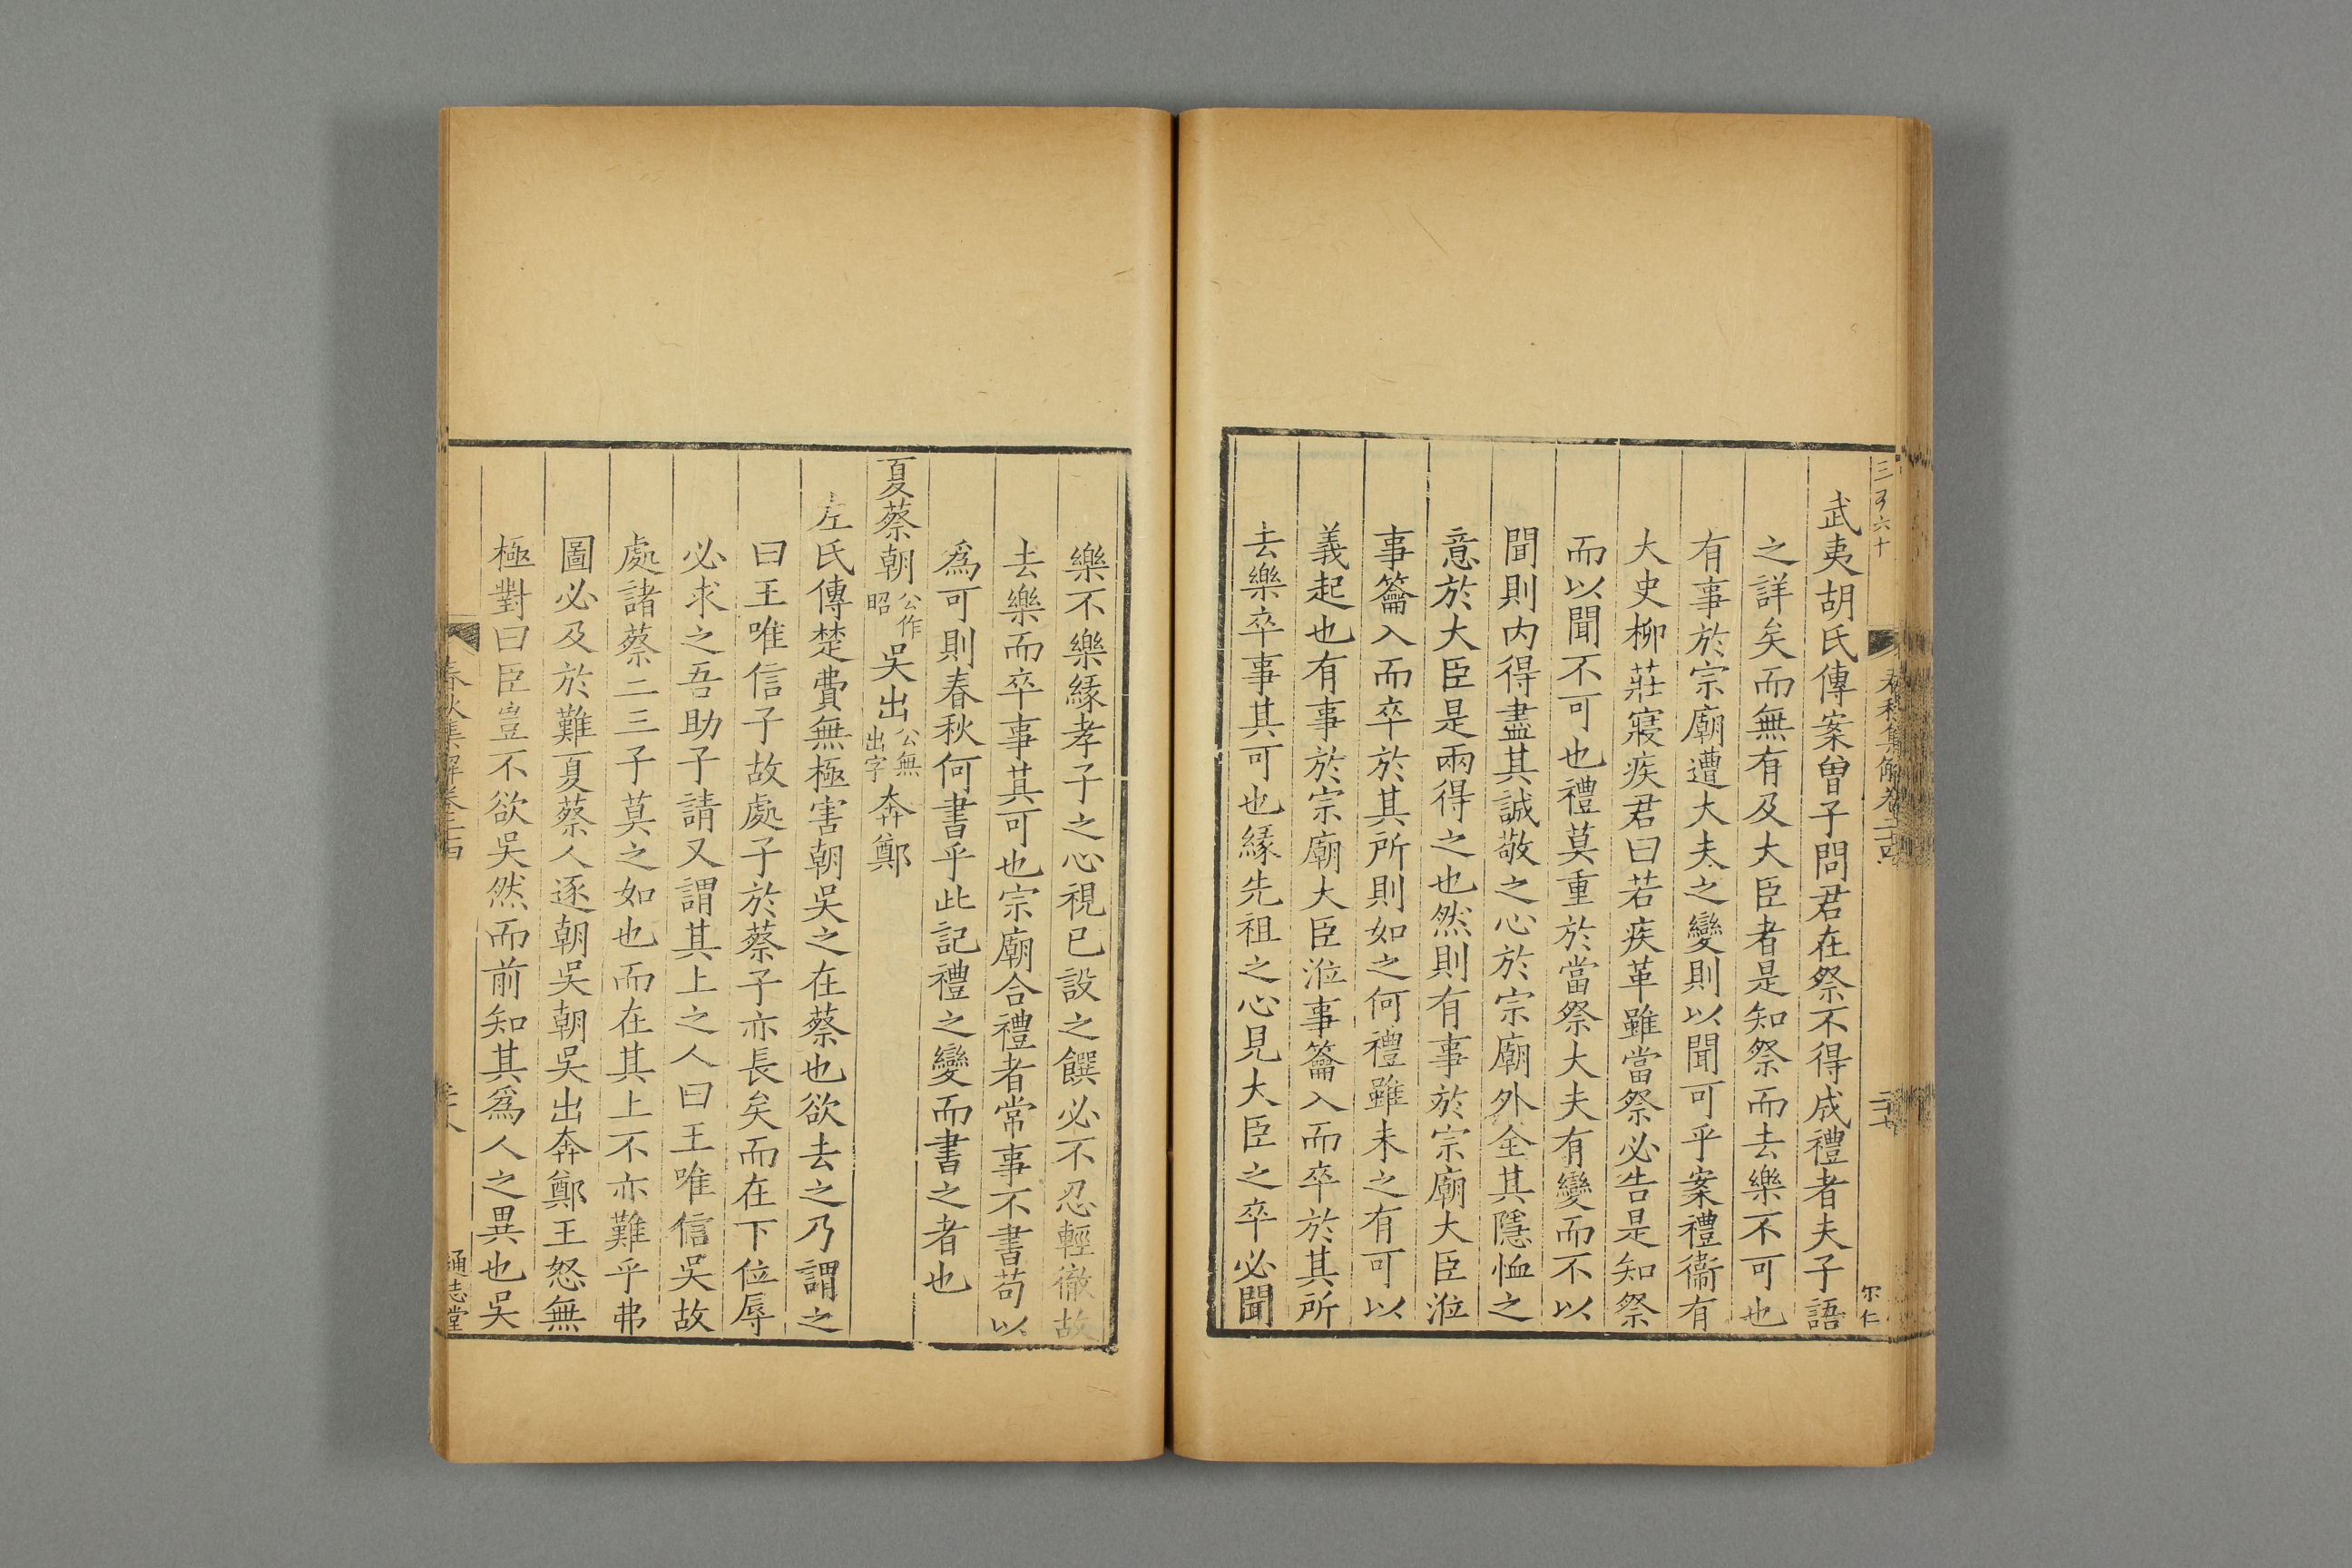 武夷胡氏傳案曽子問君在祭不得成禮者夫子語
之詳矣而無有及大臣者是知祭而去樂不可也
有事於宗廟遭大夫之變則以聞可乎案禮衞有
大史柳莊寢疾君曰若疾革雖當祭必告是知祭
而以聞不可也禮莫重於當祭大夫有變而不以
聞則内得盡其誠敬之心於宗廟外全其隱恤之
意於大臣是兩得之也然則有事於宗廟大臣涖
事籥入而卒於其所則如之何禮雖未之有可以
義起也有事於宗廟大臣涖事籥入而卒於其所
去樂卒事其可也緣先祖之心見大臣之卒必聞
樂不樂緣孝子之心視已設之饌必不忍輕徹故
去樂而卒事其可也宗廟合禮者常事不書苟以
爲可則春秋何書乎此記禮之變而書之者也
夏蔡朝公作昭吳出公無出字奔鄭
左氏傳楚費無極害朝吳之在蔡也欲去之乃謂之
曰王唯信子故處子於蔡子亦長矣而在下位辱
必求之吾助子請又謂其上之人曰王唯信吳故
處諸蔡二三子莫之如也而在其上不亦難乎弗
圖必及於難夏蔡人逐朝吳朝吳出奔鄭王怒無
極對曰臣豈不欲吳然而前知其爲人之異也吳
春秋集解卷二十四
通志堂